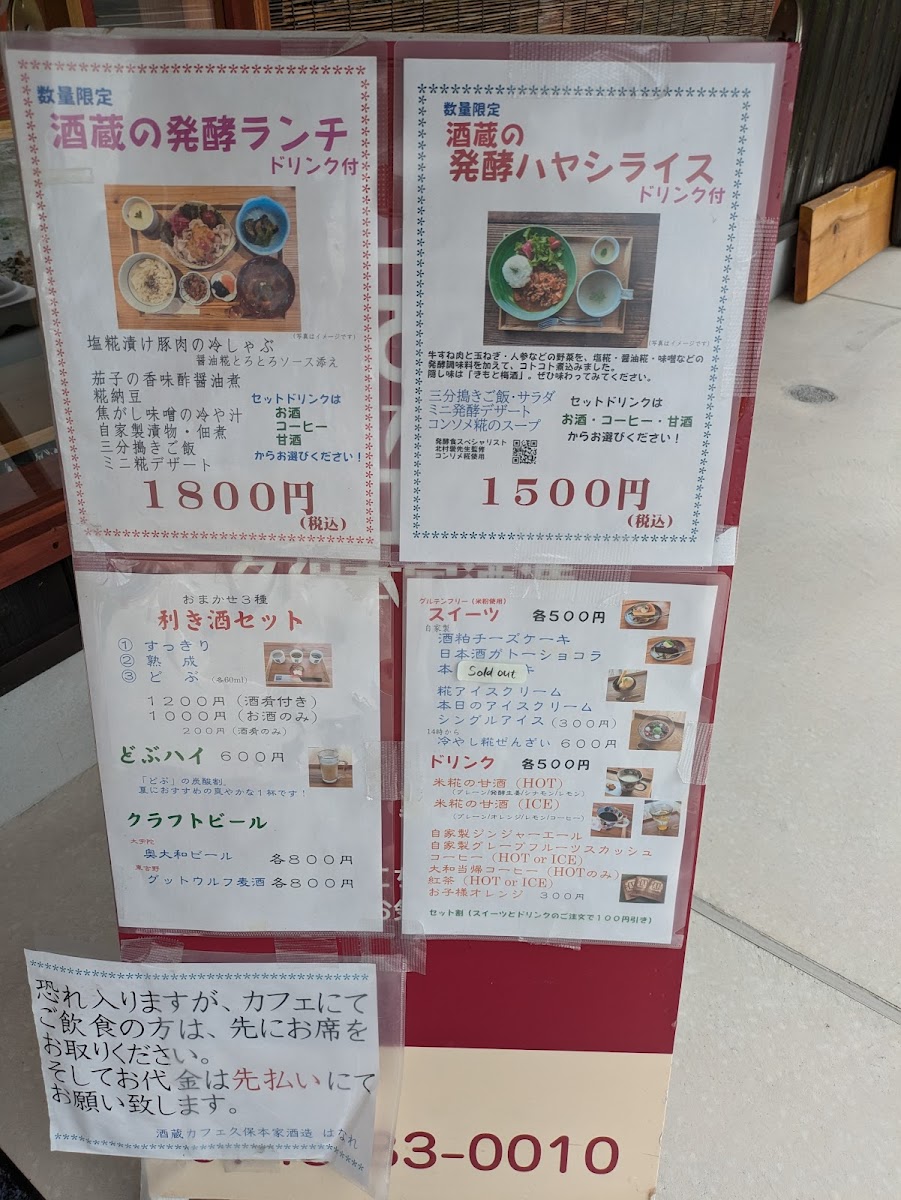 数量限定
酒蔵の発酵ランチ
ドリンク付
(写真はイメージです)
塩糀漬け豚肉の冷しゃぶ
醤油糀とろとろソース添え
茄子の香味酢醤油煮
糀納豆
焦がし味噌の冷や汁
自家製漬物・佃煮
三分搗きご飯
ミニ糀デザート
セットドリンクは
お酒
コーヒー
甘酒
からお選びください！
1800円
(税込)
数量限定
酒蔵の
発酵ハヤシライス
ドリンク付
(写真はイメージです)
牛すね肉と玉ねぎ・人参などの野菜を、塩糀・醤油糀・味噌などの
発酵調味料を加えて、コトコト煮込みました。
隠し味は「きもと梅酒」。ぜひ味わってみてください。
三分搗きご飯・サラダ
ミニ発酵デザート
コンソメ糀のスープ
発酵食スペシャリスト
コンソメ糀使用
セットドリンクは
お酒・コーヒー・甘酒
からお選びください！
1500円
(税込)
おまかせ３種
利き酒セット
① すっきり
② 熟 成
③ ど ぶ (各60ml)
１２００円（酒肴付き）
１０００円（お酒のみ）
２００円（酒肴のみ）
どぶハイ ６００円
「どぶ」の炭酸割。
夏におすすめの爽やかな１杯です！
クラフトビール
大宇陀
奥大和ビール 各８００円
東吉野
グットウルフ麦酒 各８００円
グルテンフリー（米粉使用）
スイーツ 各５００円
自家製
酒粕チーズケーキ
日本酒ガトーショコラ
本
Sold out
キ
糀アイスクリーム
本日のアイスクリーム
シングルアイス（３００円）
14時から
冷やし糀ぜんざい ６００円
ドリンク 各５００円
米糀の甘酒（HOT）
（プレーン/発酵生姜/シナモン/レモン）
米糀の甘酒（ICE）
（プレーン/オレンジ/レモン/コーヒー）
自家製ジンジャーエール
自家製グレープフルーツスカッシュ
コーヒー（HOT or ICE）
大和当帰コーヒー（HOTのみ）
紅茶（HOT or ICE）
お子様オレンジ ３００円
セット割（スイーツとドリンクのご注文で１００円引き）
恐れ入りますが、カフェにて
ご飲食の方は、先にお席を
お取りください。
そしてお代金は先払いにて
お願い致します。
酒蔵カフェ久保本家酒造 はなれ
83-0010